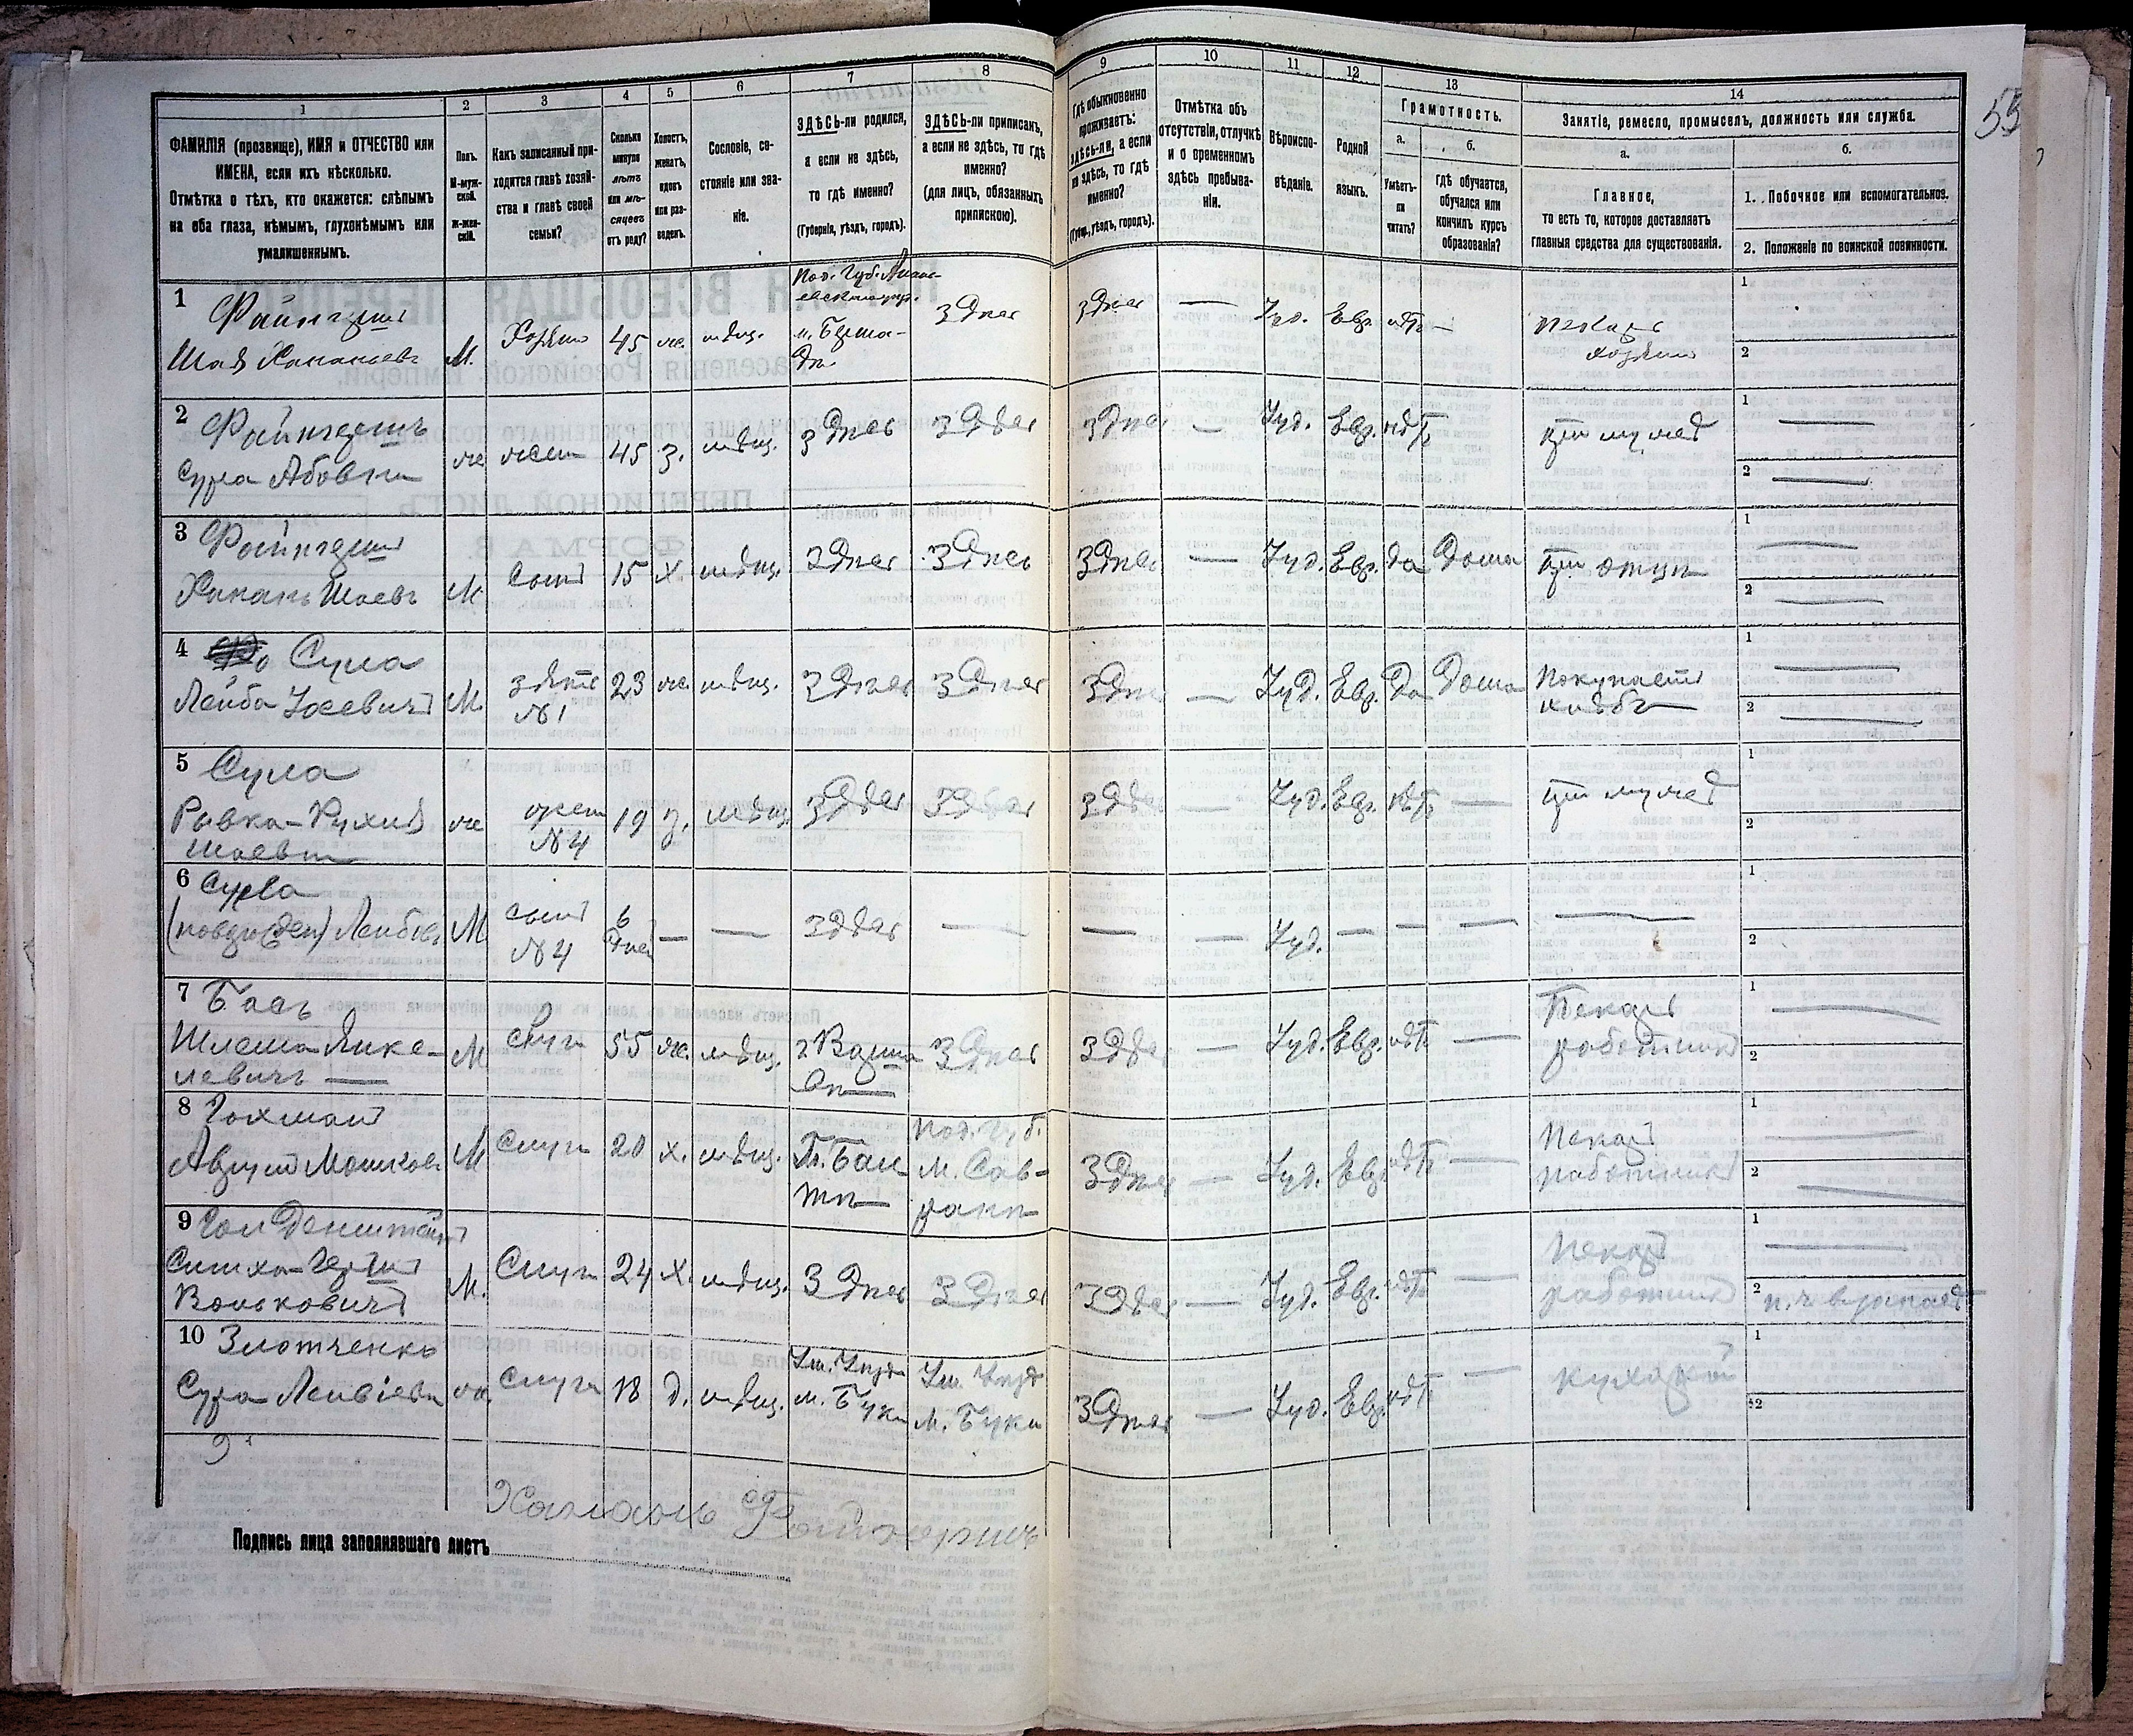 1
2
3
4
5
6
7
8
9
10
11
12
13
14
55
ФАМИЛІЯ (прозвище), ИМЯ и ОТЧЕСТВО или
ИМЕНА, если ихъ нѣсколько.
Отмѣтка о тѣхъ, кто окажется: слѣпымъ
на оба глаза, нѣмымъ, глухонѣмымъ или
умалишеннымъ.
Полъ.
М-муж-
ской.
Ж-жен-
скій.
Какъ записанный при-
ходится главѣ хозяй-
ства и главѣ своей
семьи?
Сколько
минуло
лѣтъ
или мѣ-
сяцевъ
отъ роду?
Холостъ,
женатъ,
вдовъ
или раз-
веденъ.
Сословіе, со-
стояніе или зва-
ніе.
ЗДѢСЬ-ли родился,
а если не здѣсь,
то гдѣ именно?
(Губернія, уѣздъ, городъ).
ЗДѢСЬ-ли приписанъ,
а если не здѣсь, то гдѣ
именно?
(для лицъ, обязанныхъ
припискою).
Гдѣ обыкновенно
проживаетъ:
здѣсь-ли, а если
не здѣсь, то гдѣ
именно?
(Губ., уѣздъ, городъ).
Отмѣтка объ
отсутствіи, отлучкѣ
и о временномъ
здѣсь пребыва-
ніи.
Вѣроиспо-
вѣданіе.
Родной
языкъ.
Грамотность.
а.
б.
Умѣетъ-
ли
читать?
Гдѣ обучается,
обучался или
кончилъ курсъ
образованія?
Занятіе, ремесло, промыселъ, должность или служба.
а.
б.
Главное,
то есть то, которое доставляетъ
главныя средства для существованія.
1. Побочное или вспомогательное.
2. Положеніе по воинской повинности.
1 Файнгершъ
Шая Ханановъ
М. Хозяинъ 45 ж. мѣщ.
Под. Губ.
м. Берша-
дь
Здѣсь Здѣсь — Іуд. Евр. нѣтъ —
Пекарь
хозяинъ
1
2
2 Файнгершъ
Сура Абовна
ж жена 45 з. мѣщ. Здѣсь Здѣсь Здѣсь — Іуд. Евр. нѣтъ
при мужѣ
1 —
2 —
3 Файнгершъ
Хананъ Шаевъ
М. Сынъ 15 х. мѣщ. Здѣсь Здѣсь Здѣсь — Іуд. Евр. да Дома при отцѣ
1 —
2 —
4 Сула
Лейба Іосевичъ
М. зять 23 ж. мѣщ. Здѣсь Здѣсь Здѣсь — Іуд. Евр. Да Дома
№1
Покупаетъ
хлѣбъ
1 —
2 —
5 Сула
Ривка-Рухля
Шаевна
ж жена 19 з. мѣщ. Здѣсь Здѣсь Здѣсь — Іуд. Евр. нѣтъ — при мужѣ
№4
1
2
6 Сула
(новорожден) Лейбовъ
М сынъ 6 — — Здѣсь — — — Іуд. — — — —
№4 дней
1
2
7 Басъ
Шлема Янке-
левичъ —
М слуга 55 ж. мѣщ. Здѣсь Здѣсь — Іуд. Евр. нѣтъ —
Пекарь
работникъ
1 —
2
8 Гохманъ
Мошковъ
М Слуга 20 х. мѣщ.
Под. Губ.
м. Сав-
рани
Здѣсь — Іуд. Евр. нѣтъ —
Пекарь
работникъ
1 —
2 —
9 Гольденштейнъ
Симха-Гершъ
Вольковичъ
М. Слуга 24 х. мѣщ. Здѣсь Здѣсь Здѣсь — Іуд. Евр. нѣтъ —
Пекарь
работникъ
1 —
2
10 Злотченко
Сура Лейбовна
ж. Слуга 18 д. мѣщ.
м. Буки
м. Буки
Здѣсь — Іуд. Евр. нѣтъ —
кухарка
1
2
Хананъ Файнгершъ
Подпись лица заполнявшаго листъ